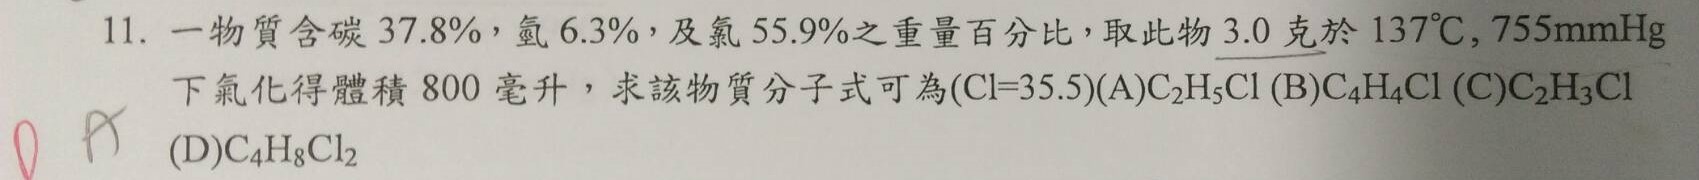 11. 一物質含碳 37.8%，氫 6.3%，及氯 55.9%之重量百分比，取此物 3.0 克於 137℃, 755mmHg
下氣化得體積 800 毫升，求該物質分子式可為(Cl=35.5)(A)C₂H₅Cl (B)C₄H₄Cl (C)C₂H₃Cl
D A (D)C₄H₈Cl₂